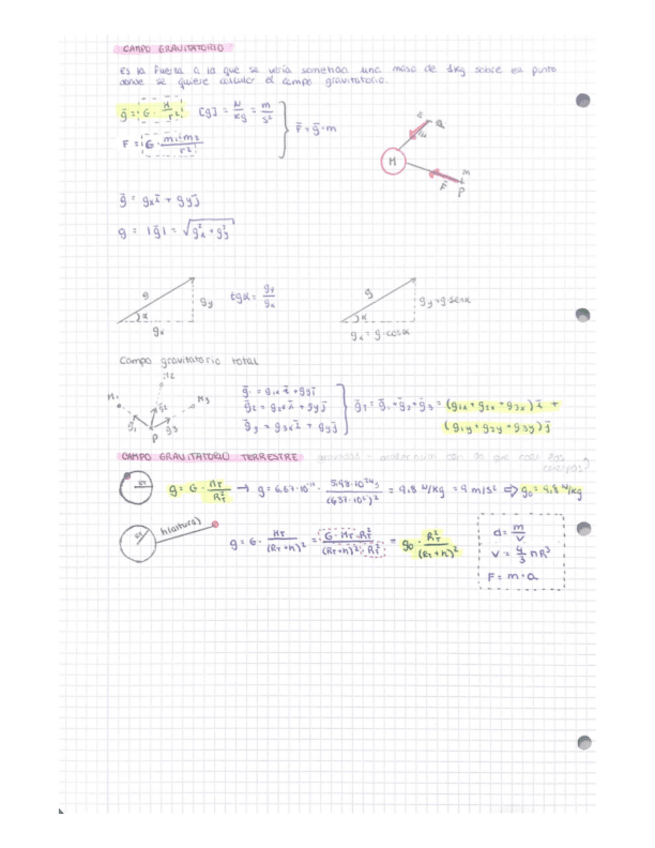 CAMPO GRAVITATORIO
Es la fuerza a la que se vería sometida una masa de 1kg sobre ese punto
donde se quiere calcular el campo gravitatorio.
g⃗ = G · M/r² [g] = N/kg = m/s² } F⃗ = g⃗ · m
F = G · m₁·m₂/r²
M
m
F⃗
P
g⃗ = gx i⃗ + gy j⃗
g = |g⃗| = √(g²x + g²y)
g α gx gy tgα = gy/gx
g α gy = g·senα
gx = g·cosα
Campo gravitatorio total
m₁ m₂ m₃ P g⃗₁ g⃗₂ g⃗₃
g⃗₁ = g₁x i⃗ + g₁y j⃗
g⃗₂ = g₂x i⃗ + g₂y j⃗
g⃗₃ = g₃x i⃗ + g₃y j⃗
g⃗T = g⃗₁ + g⃗₂ + g⃗₃ = (g₁x + g₂x + g₃x) i⃗ +
(g₁y + g₂y + g₃y) j⃗
CAMPO GRAVITATORIO TERRESTRE
RT g = G · MT/RT² → g = 6,67·10⁻¹¹ · 5,98·10²⁴/(637·10⁴)² = 9,8 N/kg = 9 m/s² ⇒ g₀ = 9,8 N/kg
RT h(altura) g = G · MT/(RT+h)² = G·MT·RT²/(RT+h)²·RT² = g₀ · RT²/(RT+h)²
d = m/V
V = 4/3 πR³
F = m·a